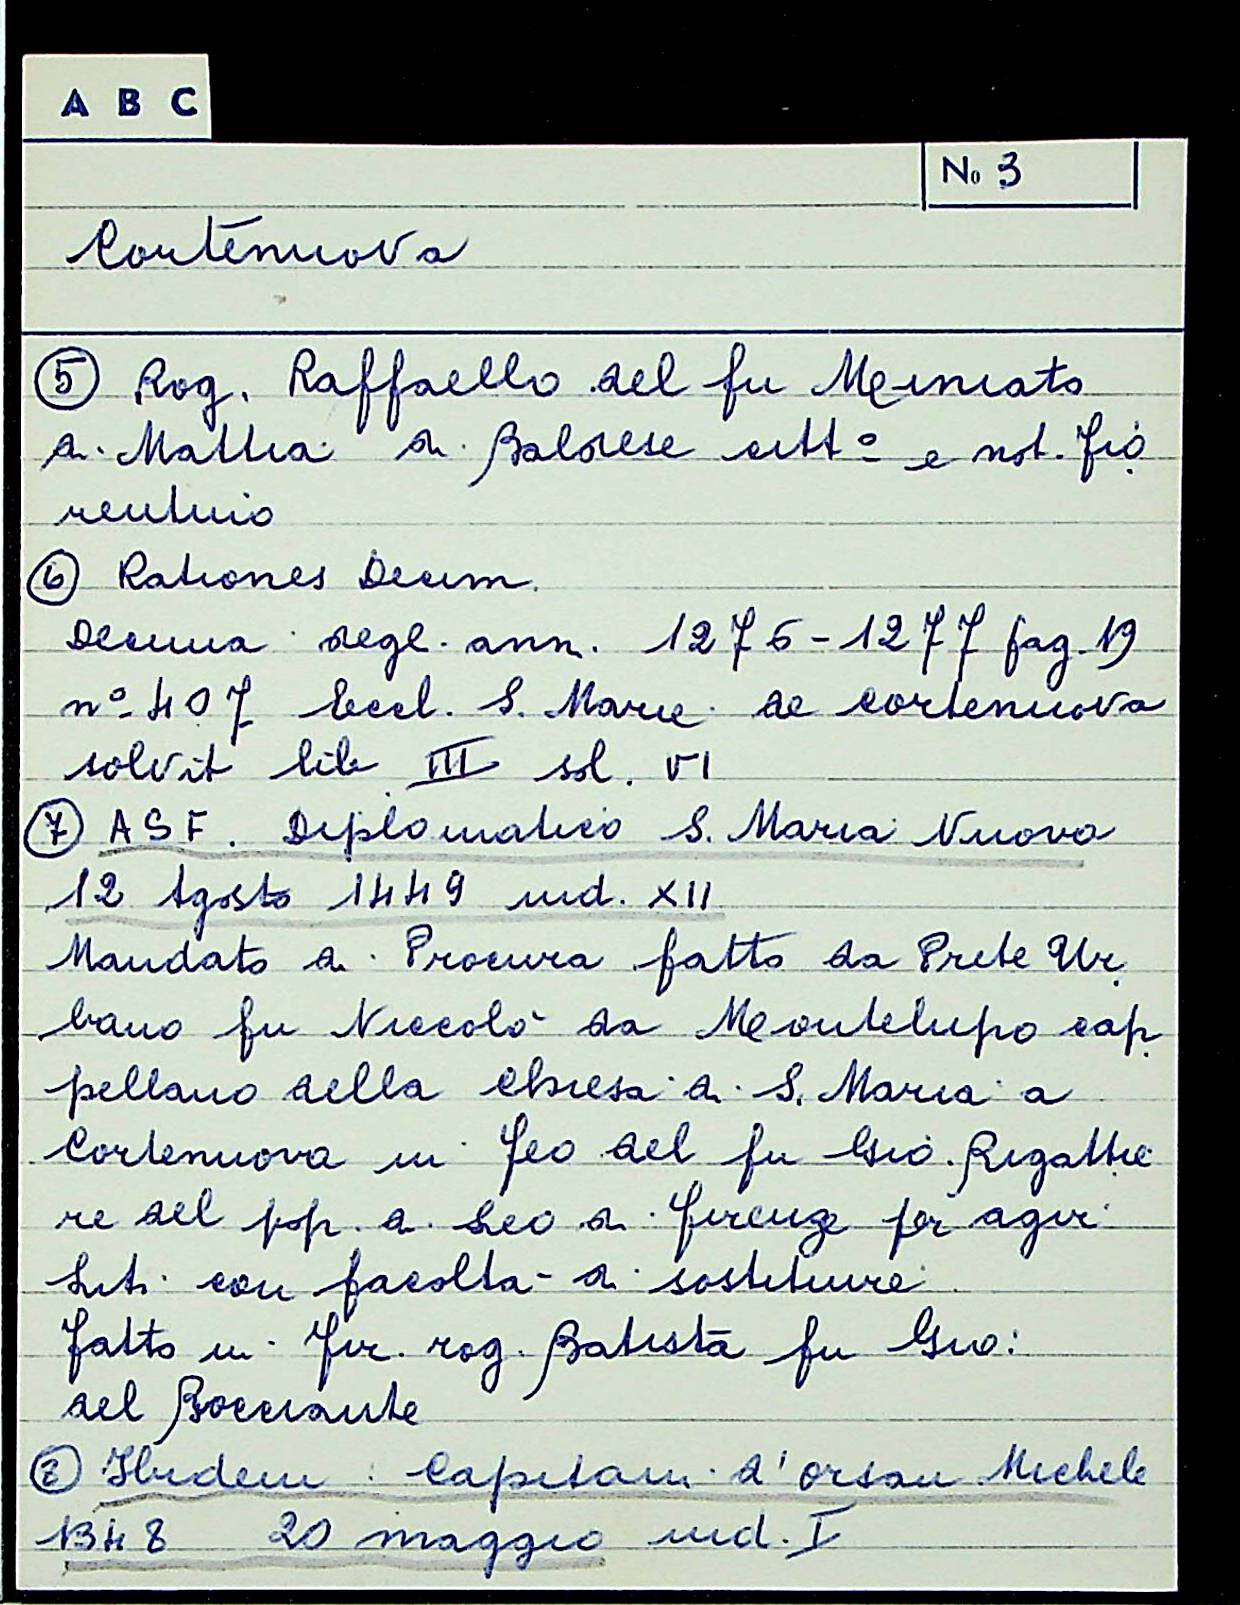 A B C
No 3
Cortenuova
5 Rog. Raffaello del fu Meiniato
di Mattia di Baldese citt° e not. fio
rentino
6 Rationes Decim.
Decima degl. ann. 1276-1277 pag. 19
n° 407 Eccl. S. Marie de Cortenuova
solvit lib III sol. VI
7 ASF. Diplomatico S. Maria Nuova
12 Agosto 1449 ind. XII
Mandato di Procura fatto da Prete Ur
bano fu Niccolò da Montelupo cap
pellano della Chiesa di S. Maria a
Cortenuova in Feo del fu Gio. Rigattie
re del pop. di Leo di Firenze per agir
liti con facoltà di sostituire
fatto in Fir. rog. Batista fu Gio:
del Bocciante
8 Ibidem: Capitani d'Orsan Michele
1348 20 maggio ind. I